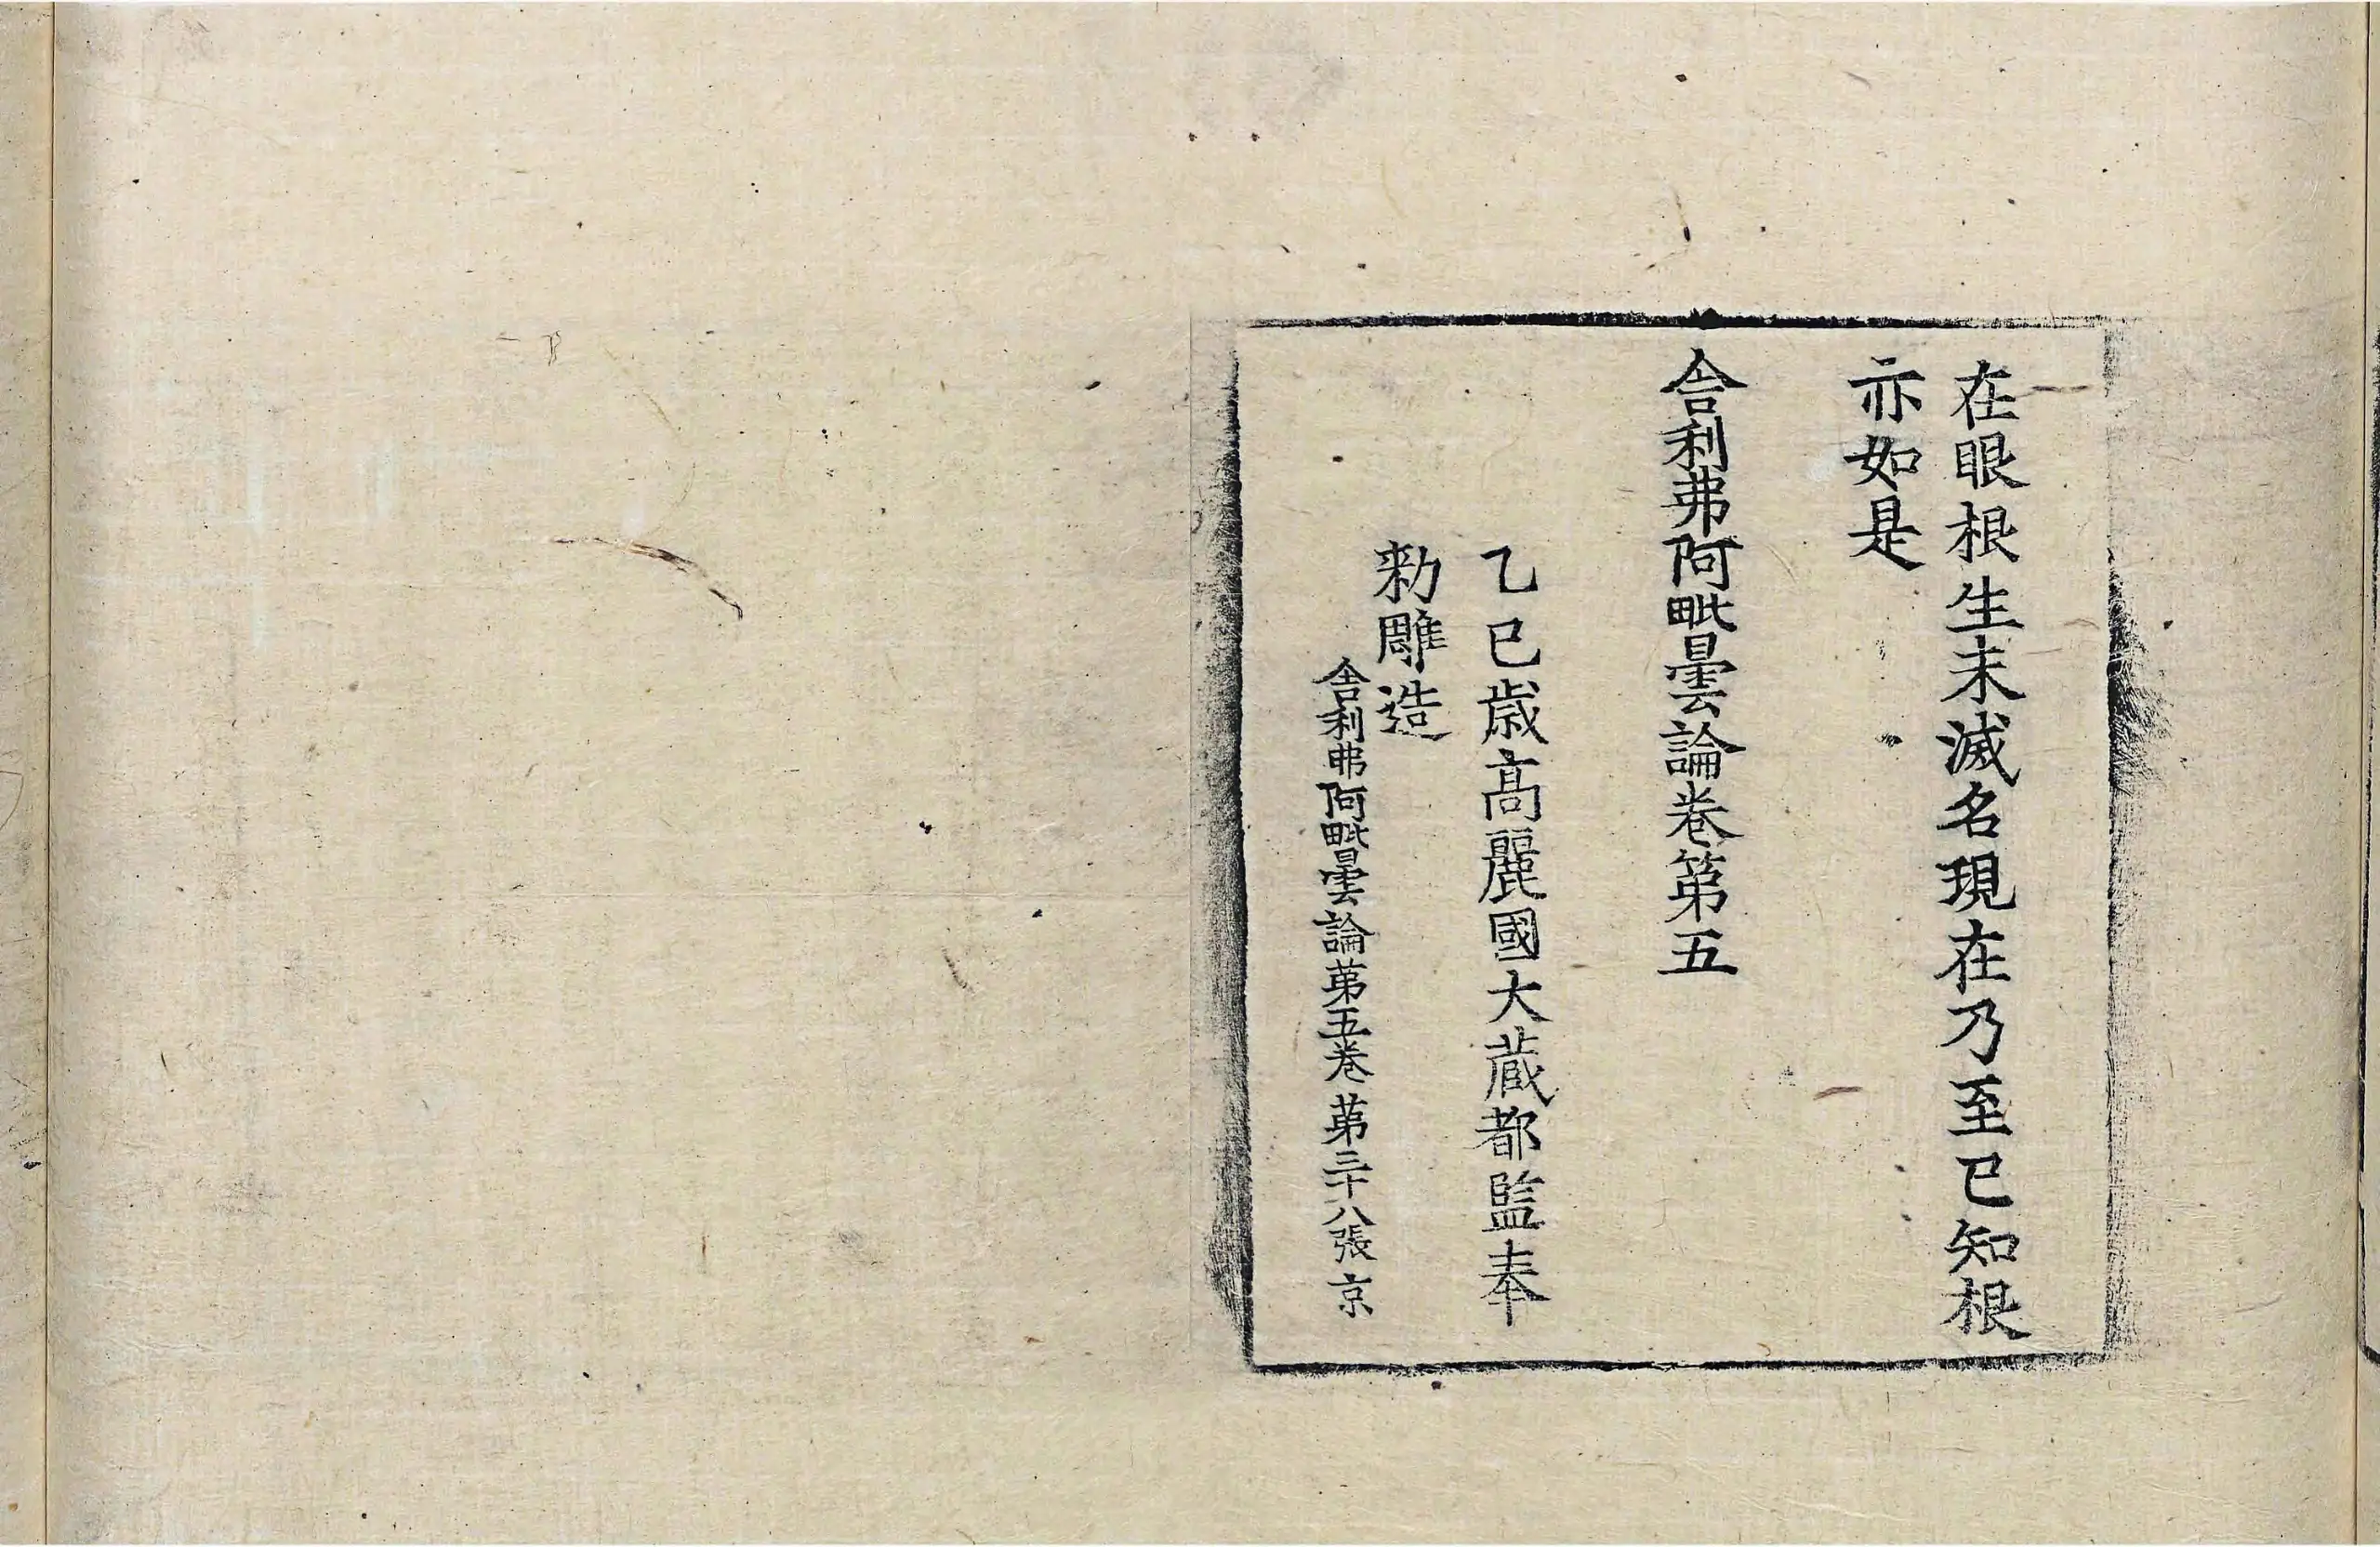 在眼根生未滅名現在乃至已知根
亦如是
舍利弗阿毗曇論卷第五
乙巳歲高麗國大藏都監奉
勑雕造
舍利弗阿毗曇論第五卷 第三十八張 京